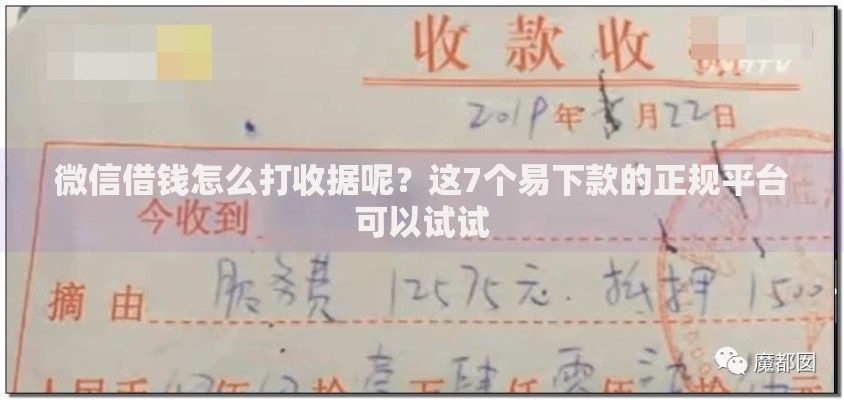 收款收
2019年5月22日
微信借钱怎么打收据呢?这7个易下款的正规平台
可以试试
今收到
摘由 服务费 12575元. 抵押 1500
人民币 拾壹万肆仟零佰 拾
魔都囡